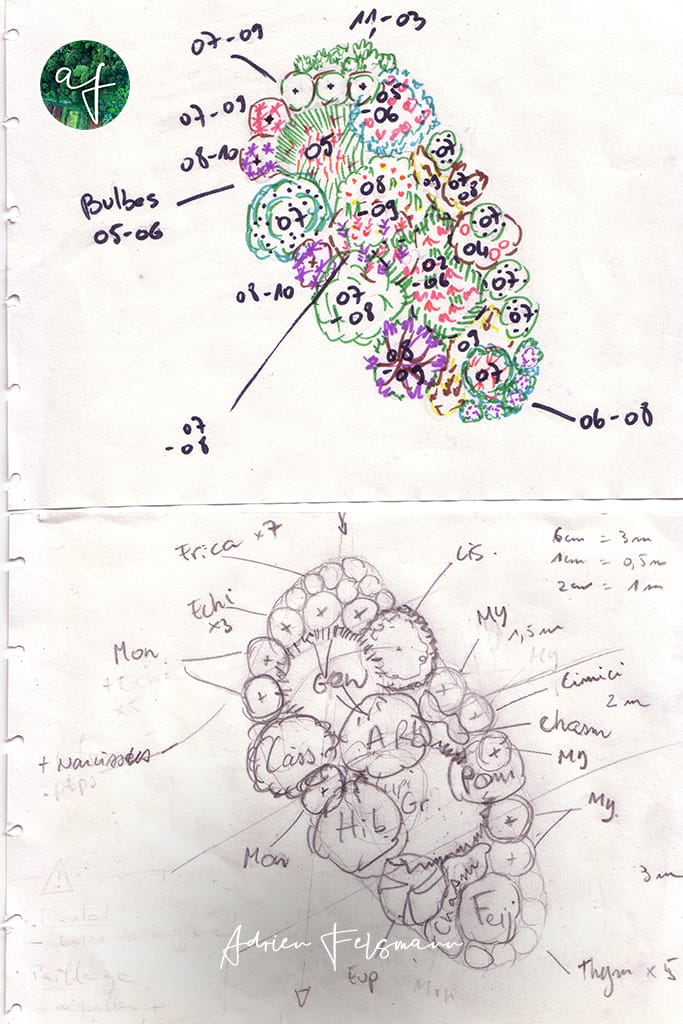 af
11-03
07-09
05
-06
07-09
05
07
08-10
08
-09
09
07
08
Bulbes
05-06
07
07
04
02
-06
07
08-10
07
+08
07
09
08
-09
07
07
-08
06-08
Erica x7
cis.
6cm = 3m
1cm = 0,5m
2cm = 1m
Echi
x3
My
1,5m
My
Mon
+ Echi
x5
Gew
Cimici
2m
Chasm
My
+ Narcisses
Cass
ARB
Pomi
Gr.
Hib
My.
Mon
Chasm
3m
Feij
Adrien Felsmann
Eup
Mon
Thym x 5
Paillage